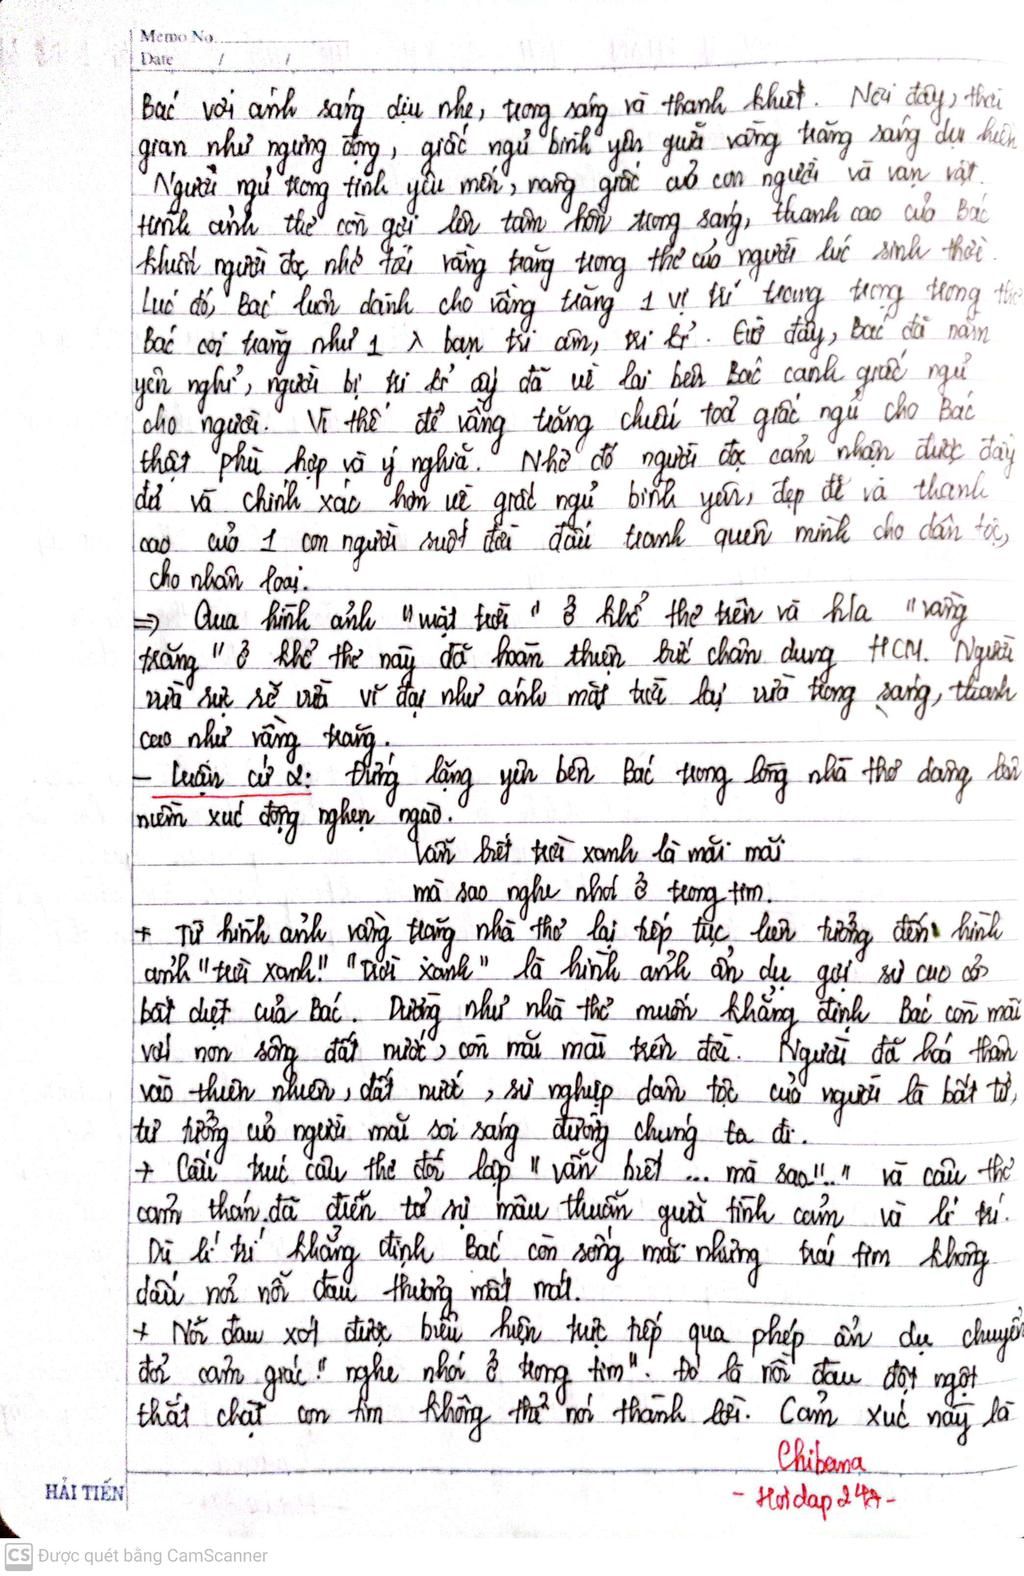 Memo No.
Date / /
Bác với ánh sáng dịu nhẹ, trong sáng và thanh khiết. Nơi đây, thời
gian như ngưng đọng, giấc ngủ bình yên giữa vầng trăng sáng dịu hiền
Người ngủ trong tình yêu mến, nâng giấc cuả con người và vạn vật.
Hình ảnh thơ còn gợi lên tâm hồn trong sáng, thanh cao của Bác
khiến người đọc nhớ tới vầng trăng trong thơ của người lúc sinh thời.
Lúc đó, Bác luôn dành cho vầng trăng 1 vị trí trang trọng trong thơ
Bác coi trăng như 1 bạn tri âm, tri kỉ. Giờ đây, Bác đã nằm
yên nghỉ, người bị tri kỉ ấy đã về lại bên Bác canh giấc ngủ
cho người. Vì thế để vầng trăng chiếu toả giấc ngủ cho Bác
thật phù hợp và ý nghĩa. Nhờ đó người đọc cảm nhận được đầy
đủ và chính xác hơn về giấc ngủ bình yên, đẹp đẽ và thanh
cao của 1 con người suốt đời đấu tranh quên mình cho dân tộc,
cho nhân loại.
=> Qua hình ảnh "mặt trời" ở khổ thơ trên và h/a "vầng
trăng" ở khổ thơ này đã hoàn thiện bức chân dung HCM. Người
vừa rực rỡ vừa vĩ đại như ánh mặt trời lại vừa trong sáng, thanh
cao như vầng trăng.
- Luận cứ 2: Đứng lặng yên bên Bác trong lòng nhà thơ dâng lên
niềm xúc động nghẹn ngào.
Vẫn biết trời xanh là mãi mãi
mà sao nghe nhói ở trong tim.
+ Từ hình ảnh vầng trăng nhà thơ lại tiếp tục liên tưởng đến hình
ảnh "trời xanh". "Trời xanh" là hình ảnh ẩn dụ gợi sự cao cả
bất diệt của Bác. Dường như nhà thơ muốn khẳng định Bác còn mãi
với non sông đất nước, còn mãi mãi trên đời. Người đã hoá thân
vào thiên nhiên, đất nước, sự nghiệp dân tộc của người là bất tử,
tư tưởng cuả người mãi soi sáng đường chúng ta đi.
+ Cấu trúc câu thơ đối lập "vẫn biết ... mà sao..." và câu thơ
cảm thán, đã diễn tả sự mâu thuẫn giữa tình cảm và lí trí.
Dù lí trí khẳng định Bác còn sống mãi nhưng trái tim không
dấu nổi nỗi đau thương mất mát.
+ Nỗi đau xót được biểu hiện trực tiếp qua phép ẩn dụ chuyển
đổi cảm giác "nghe nhói ở trong tim". Đó là nỗi đau đột ngột
thắt chặt con tim không thể nói thành lời. Cảm xúc này là
Chibana
- Hoidap247 -
HẢI TIẾN
CS Được quét bằng CamScanner